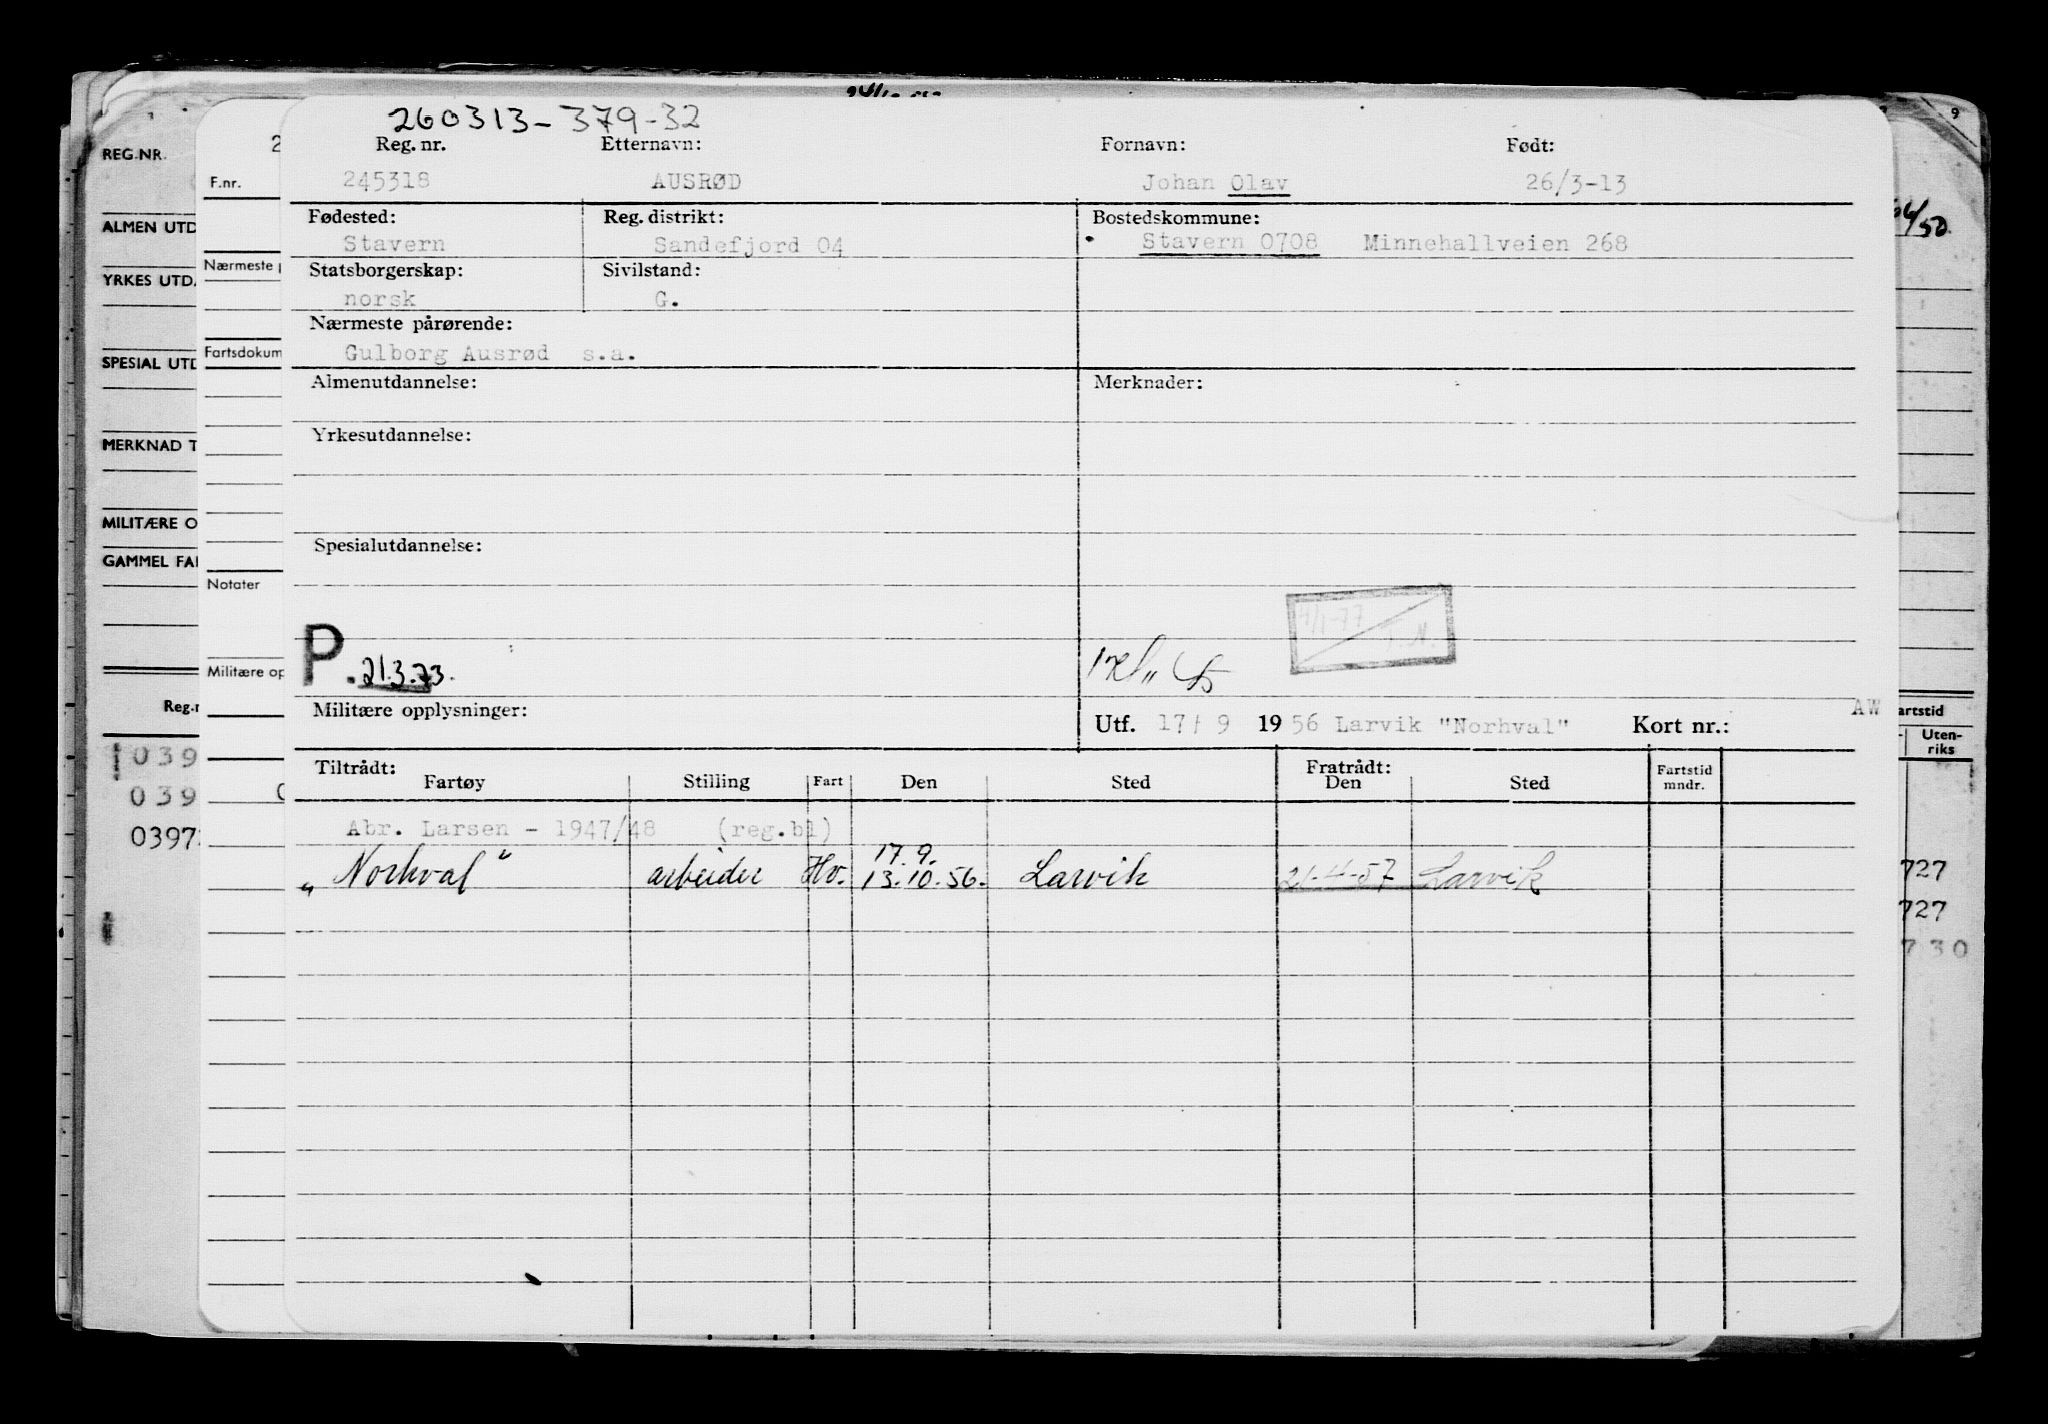 260313-379-32
Reg. nr. Etternavn: Fornavn: Født:
245318 AUSRØD Johan Olav 26/3-13
Fødested: Reg. distrikt: Bostedskommune:
Stavern Sandefjord 04 Stavern 0708 Minnehallveien 268
Statsborgerskap: Sivilstand:
norsk G.
Nærmeste pårørende:
Gulborg Ausrød s.a.
Almenutdannelse: Merknader:
Yrkesutdannelse:
Spesialutdannelse:
P. 21.3.73.
Militære opplysninger: Utf. 17/ 9 1956 Larvik "Norhval" Kort nr.: AW
Tiltrådt: Fratrådt: Fartstid
Fartøy Stilling Fart Den Sted Den Sted mndr.
Abr. Larsen - 1947/48 (reg.bl)
17.9.
„Norhval" arbeider Hv. 13.10.56. Larvik 21-4-57 Larvik
REG.NR.
ALMEN UTD
YRKES UTD.
SPESIAL UTD
MERKNAD T
MILITÆRE O
GAMMEL FA
Reg.n
039
039
0397
2
F.nr.
Nærmeste p
Fartsdokum
Notater
Militære op
9
/50
artstid
Uten-
riks
727
727
730